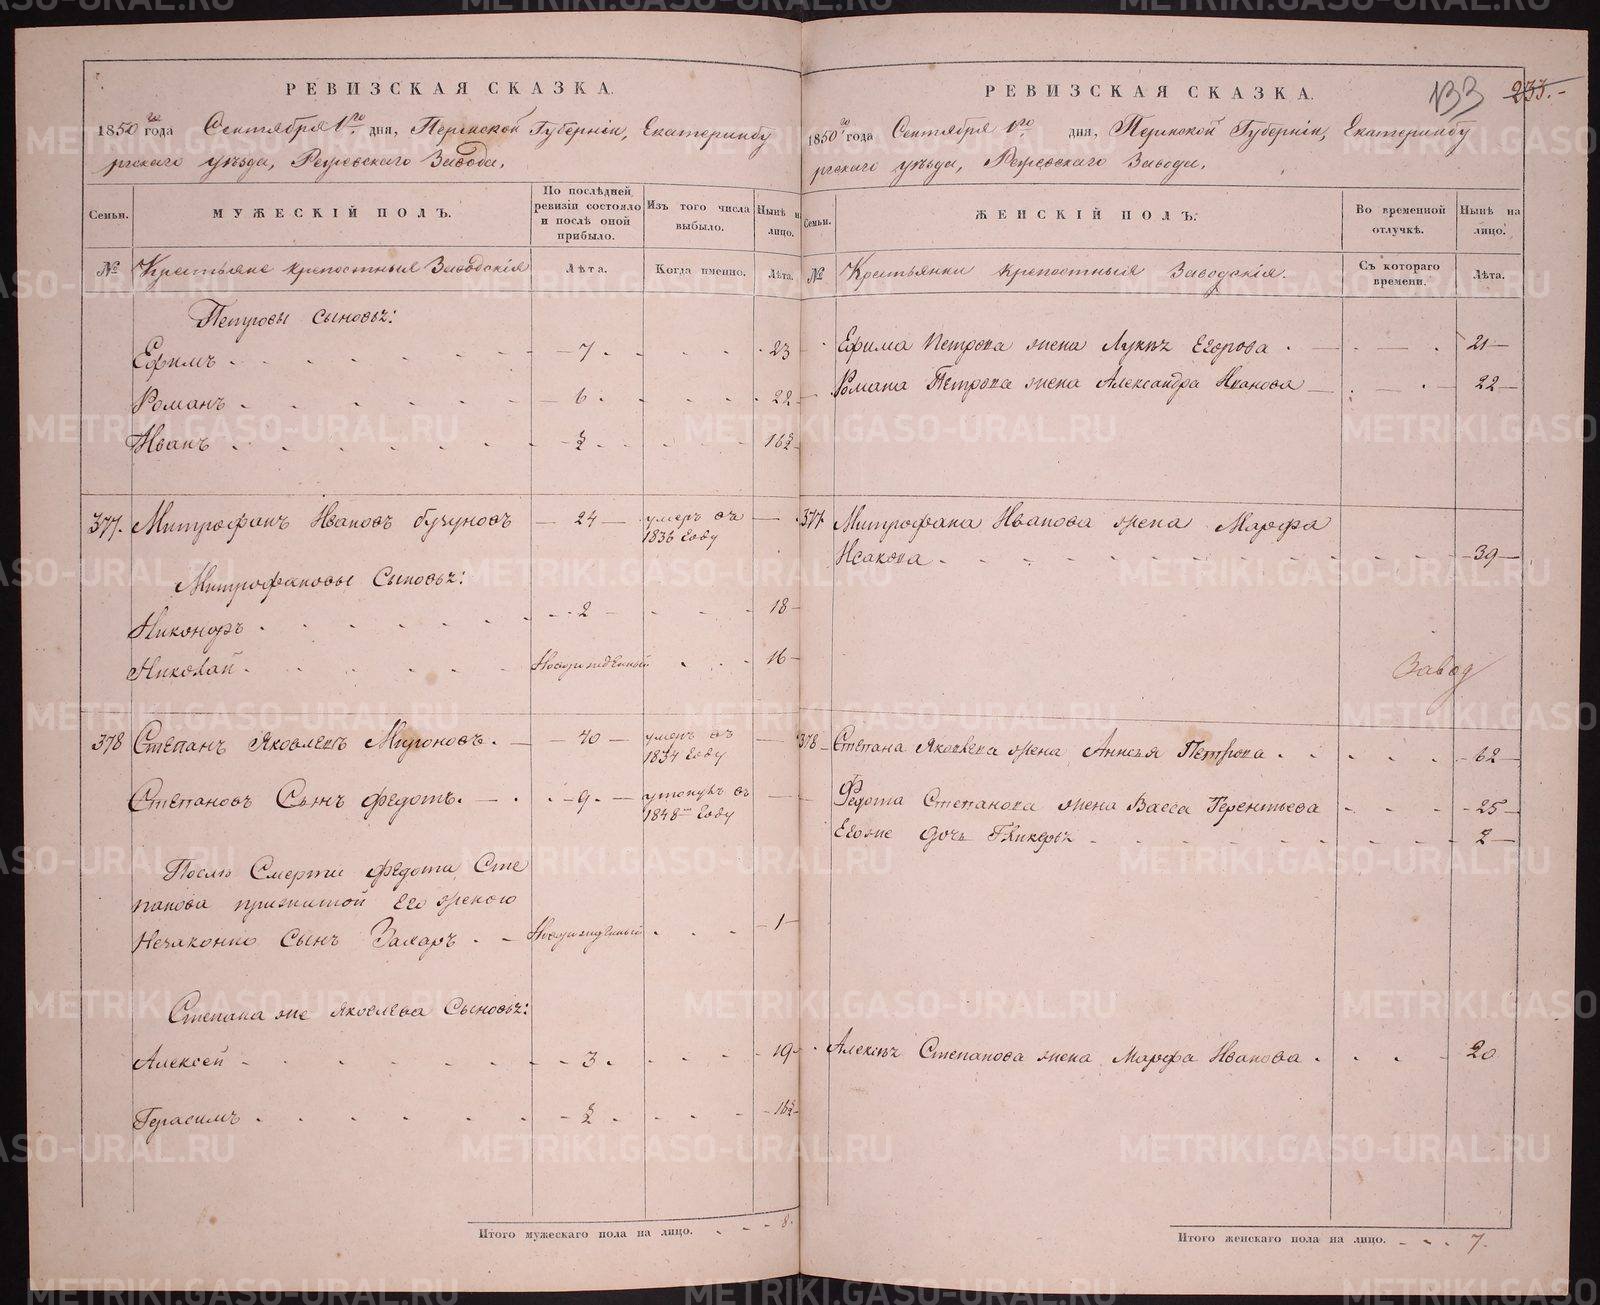 РЕВИЗСКАЯ СКАЗКА.
1850го года Сентября 1го дня, Пермской Губерніи, Екатеринбу
ргскаго уѣзда, Режевскаго Завода.
Семьи.
МУЖЕСКІЙ ПОЛЪ.
По послѣдней ревизіи состояло и послѣ оной прибыло.
Изъ того числа выбыло.
Нынѣ на лицо.
№ Крестьяне крепостныя Заводскія
Лѣта.
Когда именно.
Лѣта.
Петровы сыновья:
Ефимъ - 7 - 23
Романъ - 6 - 22
Иванъ - ½ - 16½
377. Митрофанъ Ивановъ бузуновъ - 24 - умеръ въ 1836 году
Митрофановы Сыновья:
Никоноръ - 2 - 18
Николай - Новорожденный - 16
378 Степанъ Яковлевъ Мироновъ. - 40 - умеръ въ 1834 году
Степановъ Сынъ Федотъ. - 9 - утонулъ въ 1848м году
Послѣ Смерти Федота Сте
панова прижитой Его женою
Незаконно Сынъ Захаръ - Новорожденный - 1
Степана же Яковлева Сыновья:
Алексей - 3 - 19
Герасимъ - ½ - 16½
Итого мужескаго пола на лицо. 8.
133 233.
РЕВИЗСКАЯ СКАЗКА.
1850го года Сентября 1го дня, Пермской Губерніи, Екатеринбу
ргскаго уѣзда, Режевскаго Завода.
Семьи.
ЖЕНСКІЙ ПОЛЪ.
Во временной отлучкѣ.
Нынѣ на лицо.
№ Крестьянки крепостныя Заводскія.
Съ котораго времени.
Лѣта.
Ефима Петрова жена Лукья Егорова - 21
Романа Петрова жена Александра Иванова - 22
377 Митрофана Иванова жена Марфа
Исакова - 39
Завод
378 Степана Яковлева жена Анисья Петрова - 62
Федота Степанова жена Васса Терентьева - 25
Егоже дочь Гликерья - 2
Алексѣя Степанова жена Марфа Иванова - 20
Итого женскаго пола на лицо. 7.
METRIKI.GASO-URAL.RU